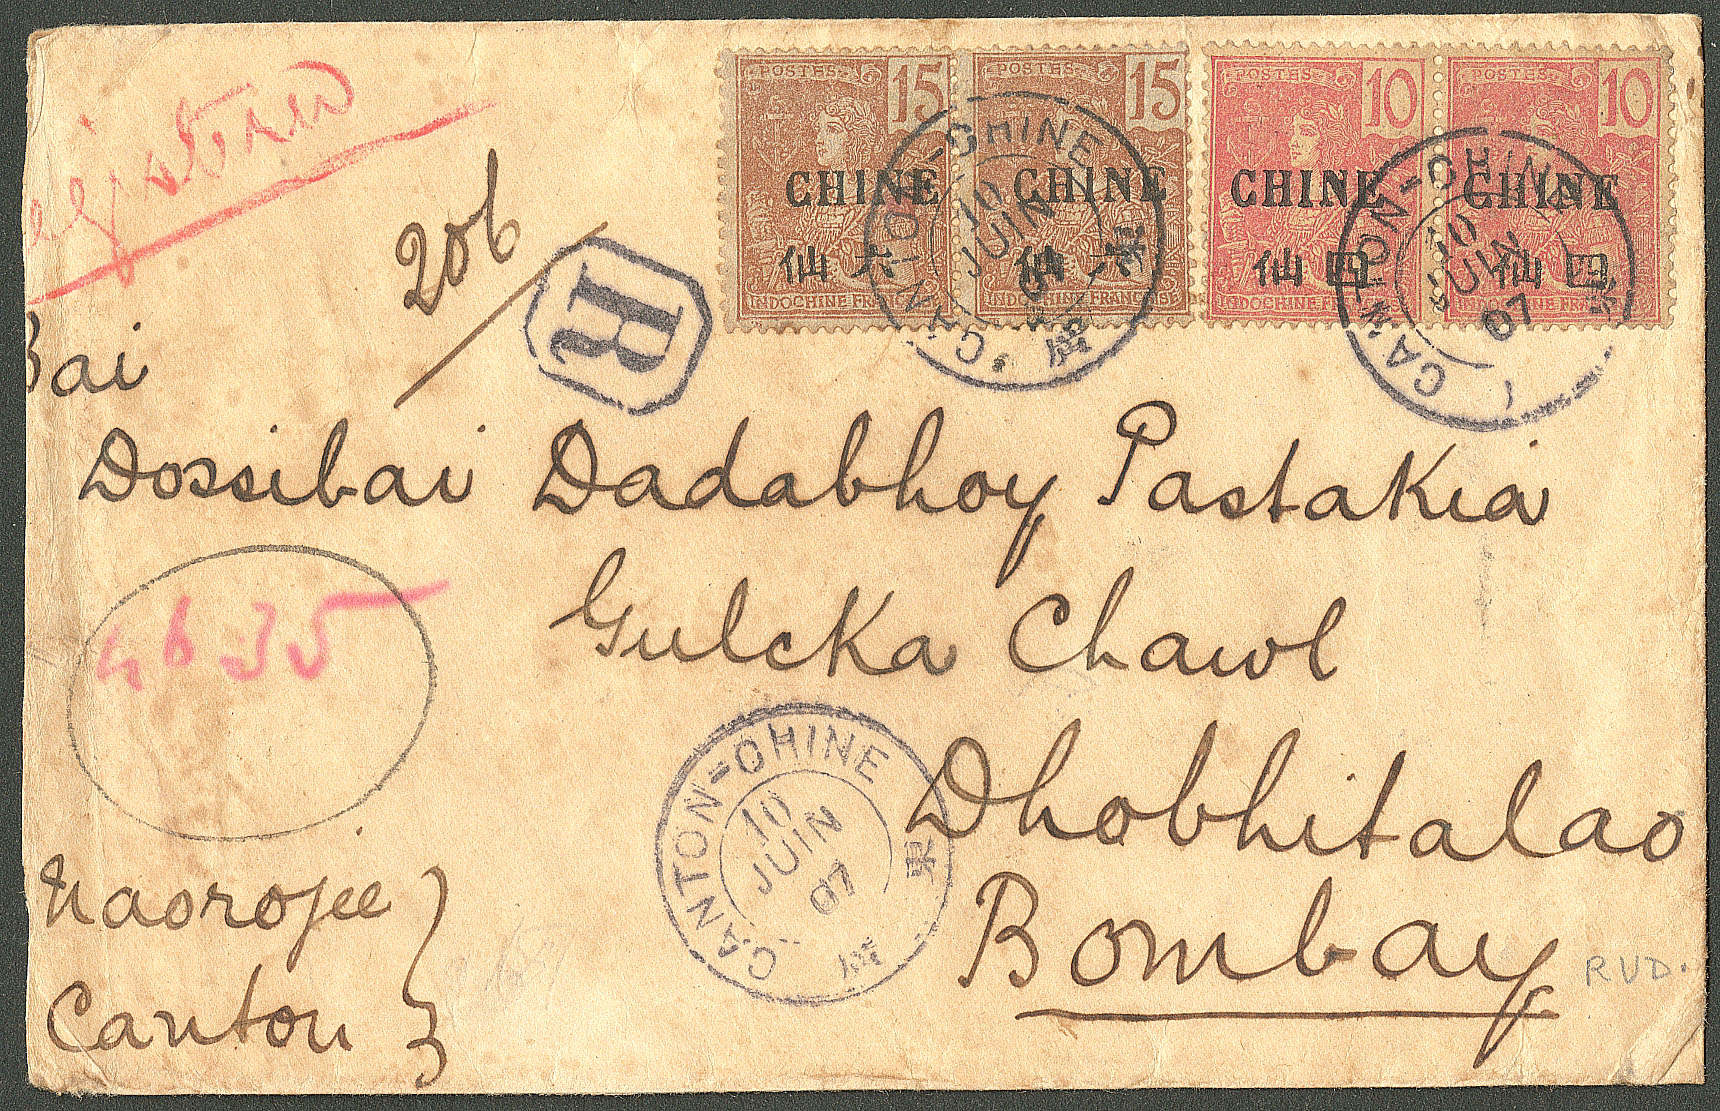 POSTES 15 POSTES 15 POSTES 10 POSTES 10
CHINE CHINE CHINE CHINE
仙六 仙六 仙四 仙四
INDOCHINE FRANÇAISE INDOCHINE FRANÇAISE INDOCHINE FRANÇAISE INDOCHINE FRANÇAISE
CANTON-CHINE
10
JUIN
07
CANTON-CHINE
10
JUIN
07
egistered
206
R
Bai
Dossibai Dadabhoy Pastakia
4635
Gulcka Chawl
Dhobhitalao
Bombay
CANTON-CHINE
10
JUIN
07
東
Naorojee
Canton
RVD.